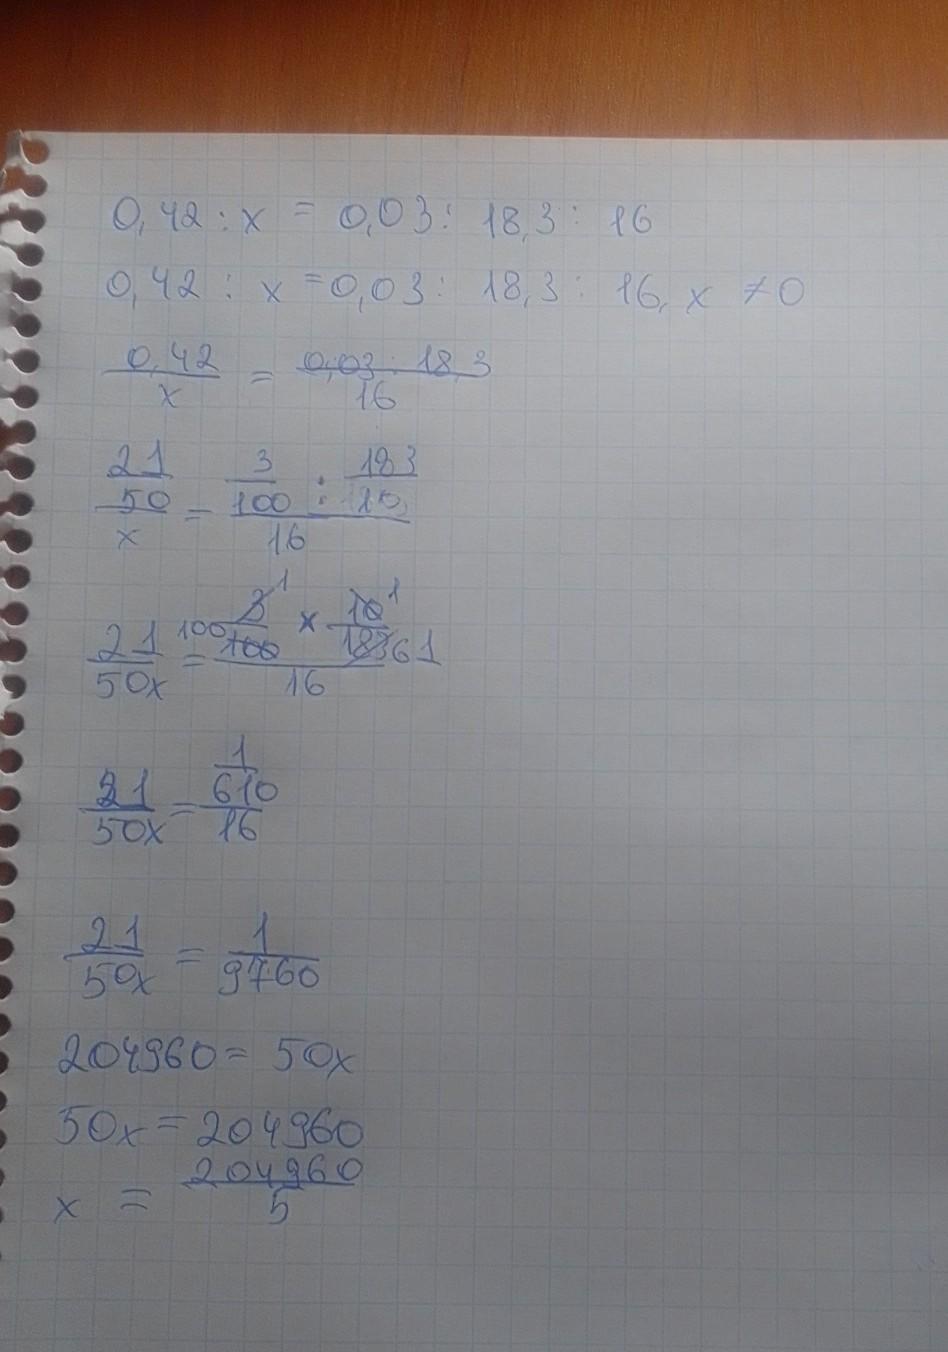 0,42 : x = 0,03 : 18,3 : 16
0,42 : x = 0,03 : 18,3 : 16, x ≠ 0
0,42 / x = 0,03 : 18,3 / 16
21/50 / x = 3/100 : 183/10 / 16
21 / 50x = 100 3 1 / 100 x 10 1 / 183 61 / 16
21 / 50x = 1/610 / 16
21 / 50x = 1 / 9760
204960 = 50x
50x = 204960
x = 204960 / 5